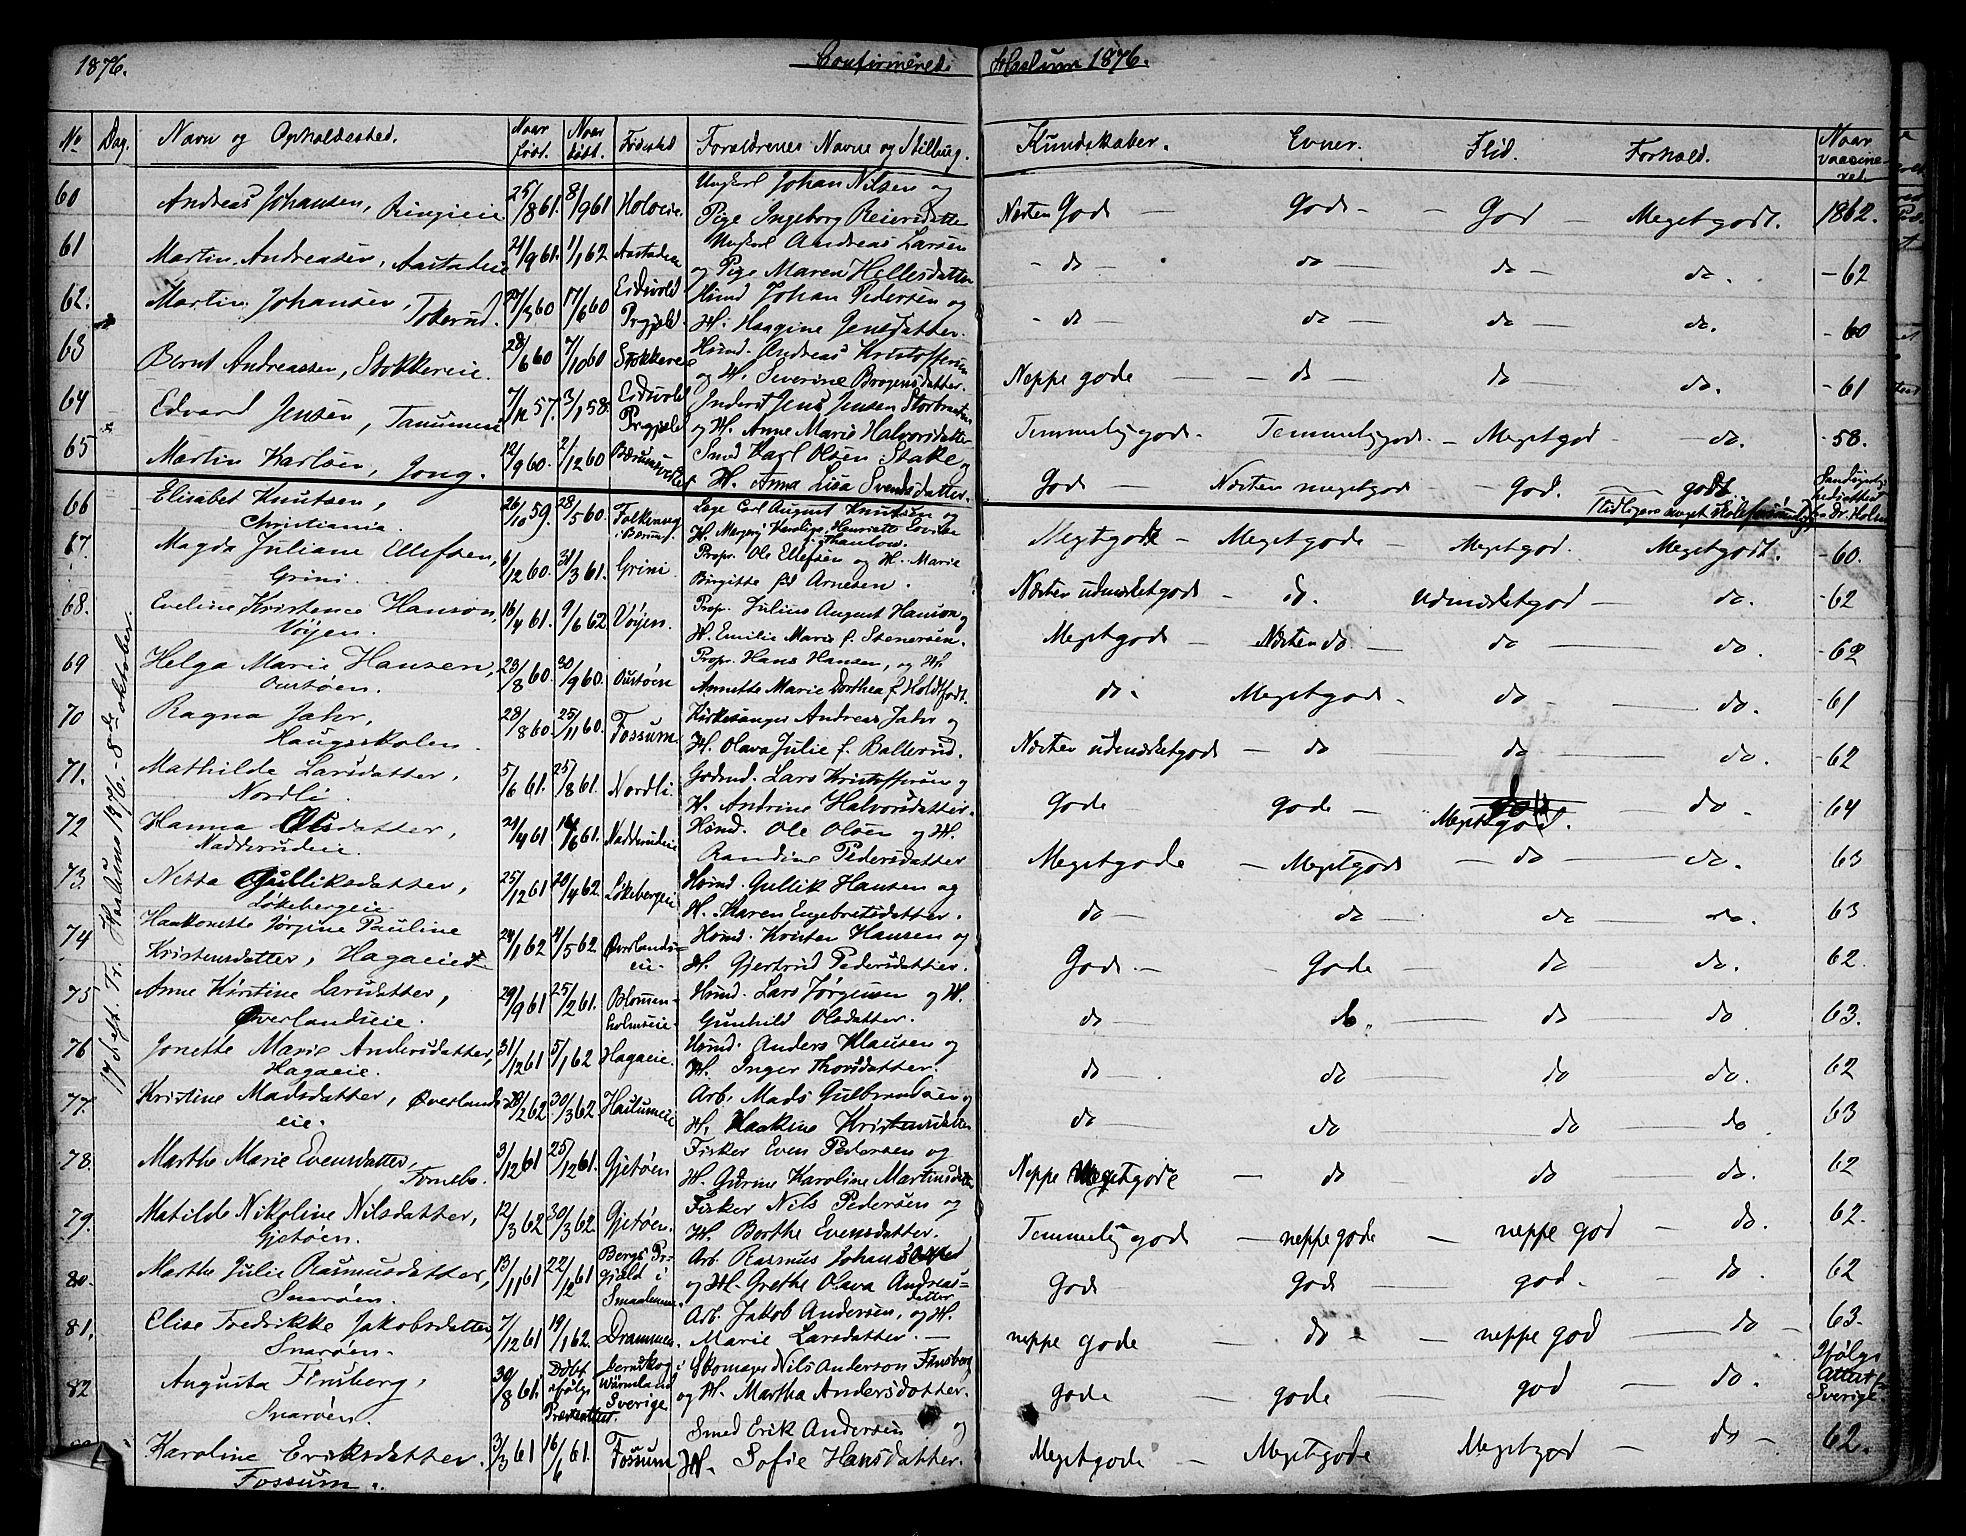 1876. Confirmerede Haslum 1876.
No Dag. Navn og Opholdssted. Naar født. Naar døbt. Fødested Forældrenes Navne og Stilling. Kundskaber. Evner. Flid. Forhold. Naar vaccineret.
60 Andreas Johansen, Ringieie 25/8 61. 8/9 61 Holveie Ungkarl Johan Nilsen og
Pige Ingeborg Reiersdatter Næsten God — Gode — God — Megetgodt. 1862.
61 Martin Andreasen, Aastadeie 21/9 61. 1/1 62 Aastadeie Ungkarl Andreas Larsen
og Pige Maren Hellesdatter - do — do — do — do. -62
62. Martin Johansen, 27/3 60 17/6 60 Eidsvold Husmd Johan Pedersen og
Tokerud. Prgjæld. H. Haagine Jensdatter. - do — do — do — do. -60
63 Bernt Andreassen, Stokkereie. 28/6 60 7/10 60 Stokkereie Husmd. Andreas Kristoffersen
og H. Severine Brogersdatter. Neppe gode — do — do — do. -61
64 Edvard Jensen, Tanumeie 7/12 57. 3/1 58. Eidsvold Inderst Jens Jensen Storbraaten
Prgjæld og H. Anne Marie Halvorsdatter Temmeliggode. Temmeliggode. — Megetgod — do. -58.
65 Martin Karlsen, Jong. 12/9 60. 2/12 60 Bærumsverket Smed Karl Olsen Stake og
H. Anna Lisa Svendsdatter. Gode — Næsten megetgod — god. — godt.
66 Elisabet Knutsen, 26/10 59. 28/5 60. Læge Carl August Knutsen og
Christiania. i Bærum. Megetgode — Megetgode — Megetgod. Megetgodt. -60.
67. Magda Juliane Ellefsen, 6/12 60. 31/3 61. Grini Propr. Ole Ellefsen og H. Marie
Grini. Birgitte fød Arnesen. Næsten udmærketgode — do. Udmærketgod — do. -62
68. Eveline Kristence Hanson, 16/4 61. 9/6 62. Vøyen. Propr. Julius August Hanson og
Vøyen. H. Emilie Marie f. Stenersen. Megetgode Næsten do — do — do. -62
69 Helga Marie Hansen, 23/8 60. 30/9 60. Oustøen Propr. Hans Hansen, og H.
Oustøen. Annette Marie Dorthea f. Holdtfodt. do. Megetgode — do — do. -61
70 Ragna Jahr, 28/8 60. 25/11 60. Fossum Kirkesanger Andreas Jahr og
Haugsskolen. H. Olava Julie f. Ballerud. Næsten udmærketgode — do do do. -62
71. Mathilde Larsdatter, 5/6 61. 25/8 61. Nordli Gaardmd. Lars Kristoffersen og
Nordli. H. Andrine Halvorsdatter. Gode gode — Megetgod. do -64
72 Hanna Olsdatter, 21/4 61 16/6 61. Nadderudeie Husmd. Ole Olsen og H.
Nadderudeie. Randine Pedersdatter Megetgode — Megetgode — do — do. 63
73. Netta Gulliksdatter, 25/12 61 20/4 62. Løkebergeie Husmd. Gullik Hansen og
Løkebergeie. H. Karen Engebretsdatter. do — do — do — do. 63
74 Haakonette Jørgine Pauline 24/1 62 4/5 62. Øverlandseie. Husmd. Kristen Hansen og
Kristensdatter, Hagaeie H. Gjertrud Pedersdatter. Gode — Gode — do — do. 62.
75 Anne Kirstine Larsdatter, 29/9 61 25/12 61. Blommenholmseie. Husmd. Lars Jørgensen og H.
Øverlandseie. Gunhild Olsdatter. do — do. — do — do 63.
76 Jonette Marie Andersdatter, 31/12 61 5/1 62 Hagaeie. Husmd. Anders Klausen og
Hagaeie. H. Inger Thorsdatter. do — do — do do. 62
77. Kristine Madsdatter, Øverlandseie. 28/2 62 30/3 62 Haslumeie Arb. Mads Gulbrandsen og
H. Haakine Kristensdatter do — do do do 63
78. Marthe Marie Evensdatter, 3/12 61 25/12 61. Gjetøen Fisker Even Pedersen og
Fornebo. H. Gurine Karoline Martinsdatter Neppe Megetgode — do do — do. 62
79. Matilde Nikoline Nilsdatter, 12/3 62 30/3 62. Gjetøen. Fisker Nils Pedersen og
Gjetøen. H. Berthe Evensdatter. Temmelig gode — neppe gode — neppe god — do. 62.
80. Marthe Julie Rasmusdatter, 13/11 61 22/12 61 Bergs Prgjæld i Smaalenene. Arb. Rasmus Johansen
Snarøen. og H. Grethe Olava Andreasdatter Gode gode — god. — do. 62
81. Elise Fredrikke Jakobsdatter 7/12 61 19/1 62. Drammen. Arb. Jakob Andersen, og H.
Snarøen. Marie Larsdatter. — neppe gode — do — neppe god — do — 63.
82 Augusta Finsberg, 30/8 61. Døbt ifølge Præsteattest. Wärmland Sverige Skomager Nils Anderson Finsberg
Snarøen. og H. Martha Andersdotter. Gode — gode — god — do. Ifølge Attest fra Sverige.
Karoline Eriksdatter. 3/3 61 16/6 61. Fossum Smed Erik Andersen og
Fossum. H. Sofie Hansdatter. Megetgode — Megetgode Megetgod — do — 62.
17de Søft. Tr. Haslum 1876. 8de oktober.